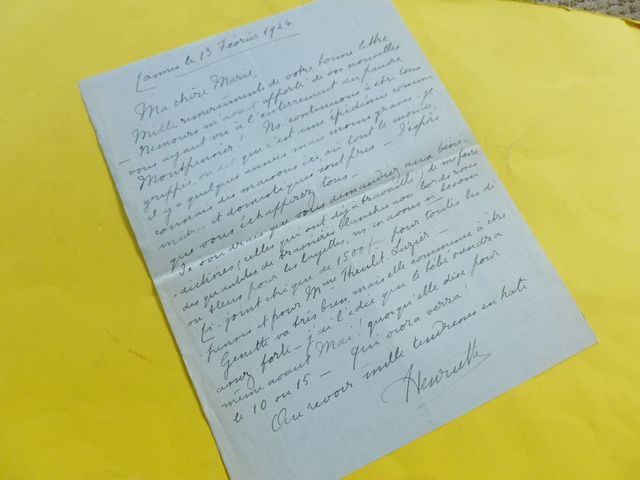 Cannes le 13 Février 1924
Ma chère Marie,
Mille remerciements de votre bonne lettre
Nemours m'avait apporté de vos nouvelles
vous ayant vu à l'enterrement du pauvre
Montpensier! Ns. continuons à être tous
grippés, on dit que c'est une épidémie comme
il y a quelques années mais moins grave - je
connais des maisons ici, où tout le monde,
maîtres et domestiques sont pris - J'espère
que vous échapperez tous -
Je voudrais que vous demandiez aux béné-
dictines, (celles qui ont déjà travaillé) de me faire
des quantités de brassières blanches avec bords roses
ou bleus pour les layettes, ns. en avons besoin
Ci-joint chèque de 1500 f pour toutes les dé-
penses et pour Mme
Genette va très bien, mais elle commence à être
assez forte - j'ai l'idée que le bébé viendra
même avant Mai! quoiqu'elle dise pour
le 10 ou 15 - qui vivra verra!
Au revoir mille tendresses en hâte
Henriette